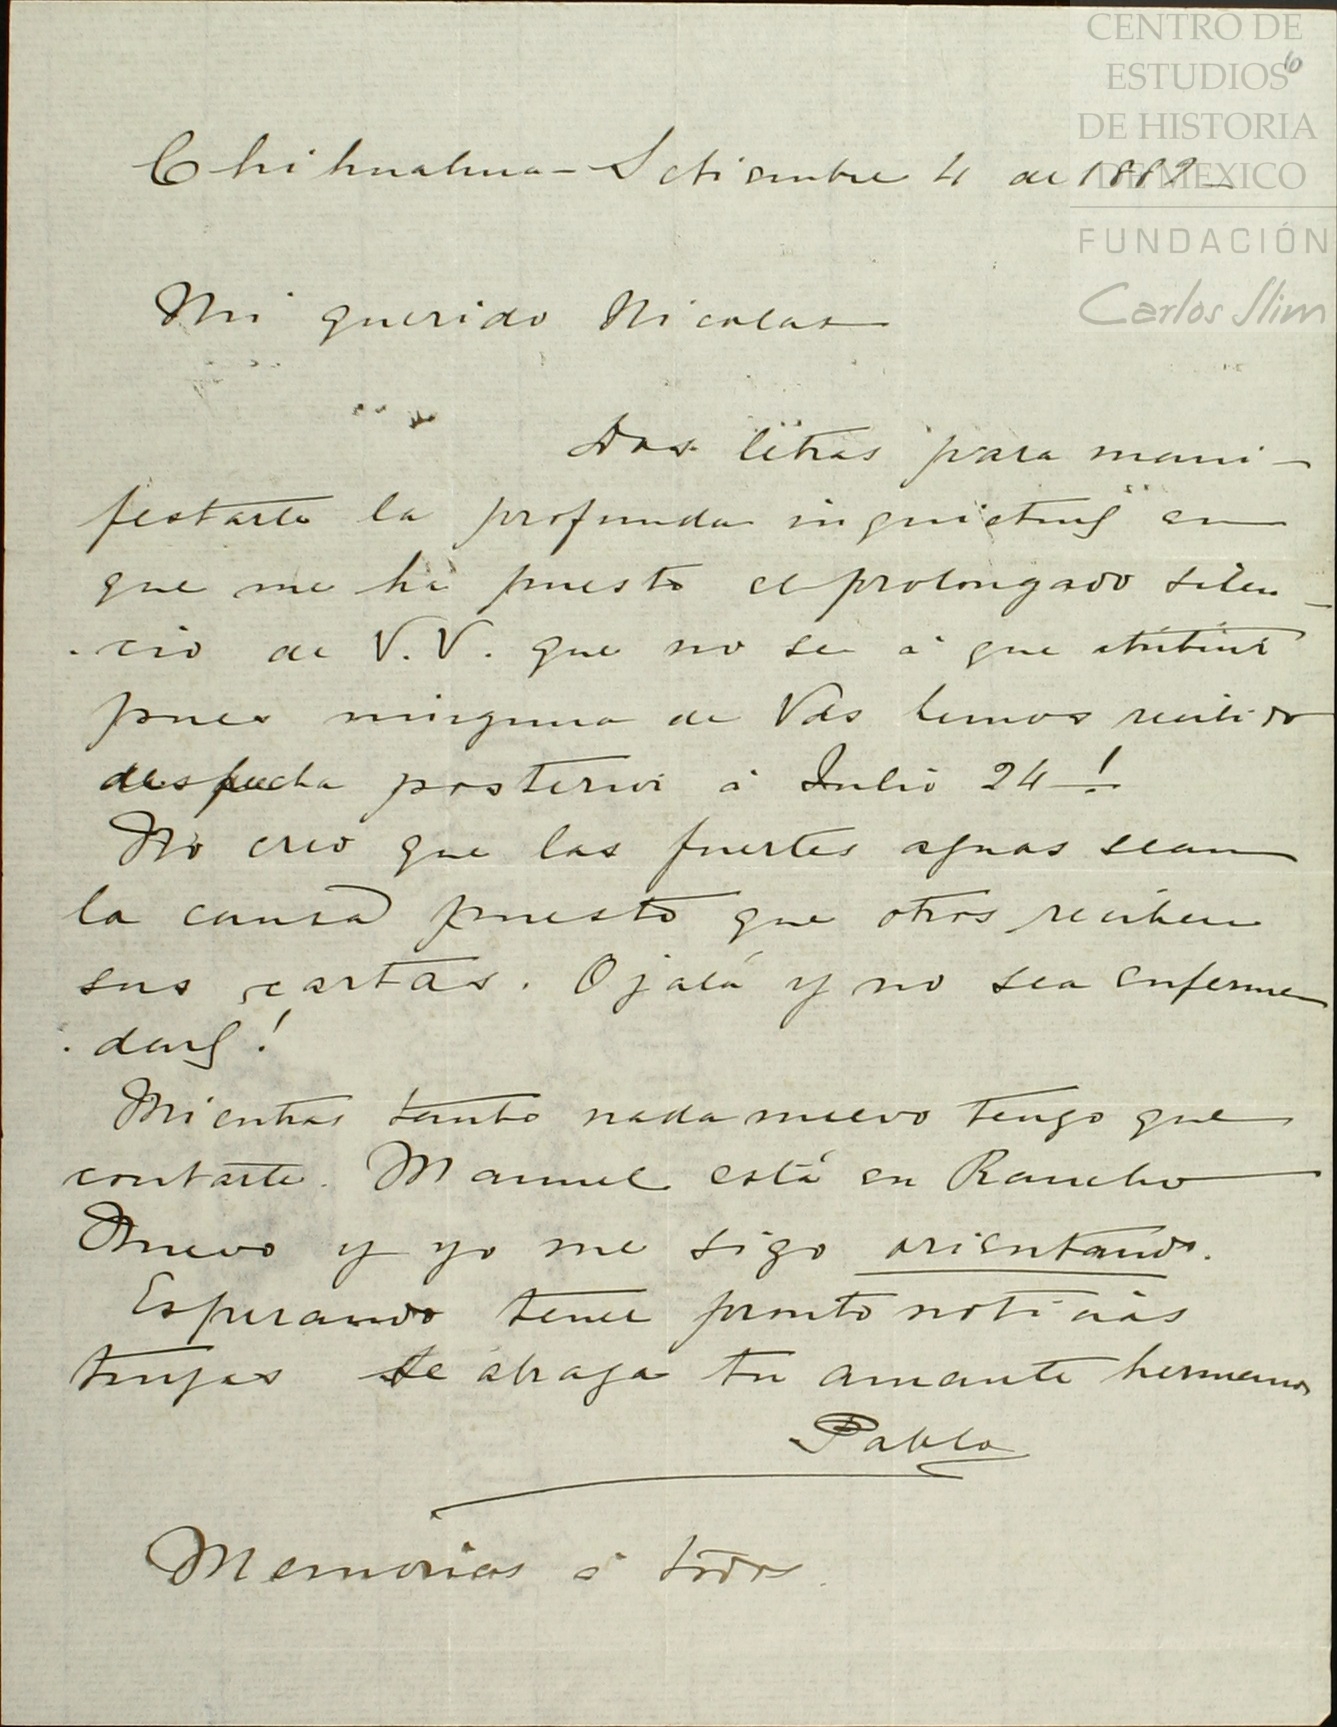 CENTRO DE
ESTUDIOS
DE HISTORIA
DE MEXICO
FUNDACIÓN
Carlos Slim
6
Chihuahua - Setiembre 4 de
Mi querido Nicolas
Dos letras para mani-
festarte la profunda inquietud en
que me ha puesto el prolongado silen-
cio de V.V. que no se á que atribuir
pues ninguna de Vds hemos recibido
de fecha posterior á Julio 24!
No creo que las fuertes aguas sean
la causa puesto que otros reciben
sus cartas. Ojalá y no sea enferme-
dad!
Mientras tanto nada nuevo tengo que
contarte. Manuel está en Rancho
Nuevo y yo me sigo orientando.
Esperando tener pronto noticias
tuyas te abraza tu amante hermano
Pablo
Memorias á todos.